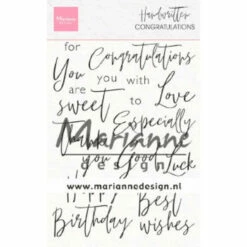 Marianne
DESIGN
Handwritten
CONGRATULATIONS
for Congratulations
You you with
are to Love
sweet Especially
Thank
you Good Luck
Marianne
www.mariannedesign.nl
Happy
Birthday Best
wishes